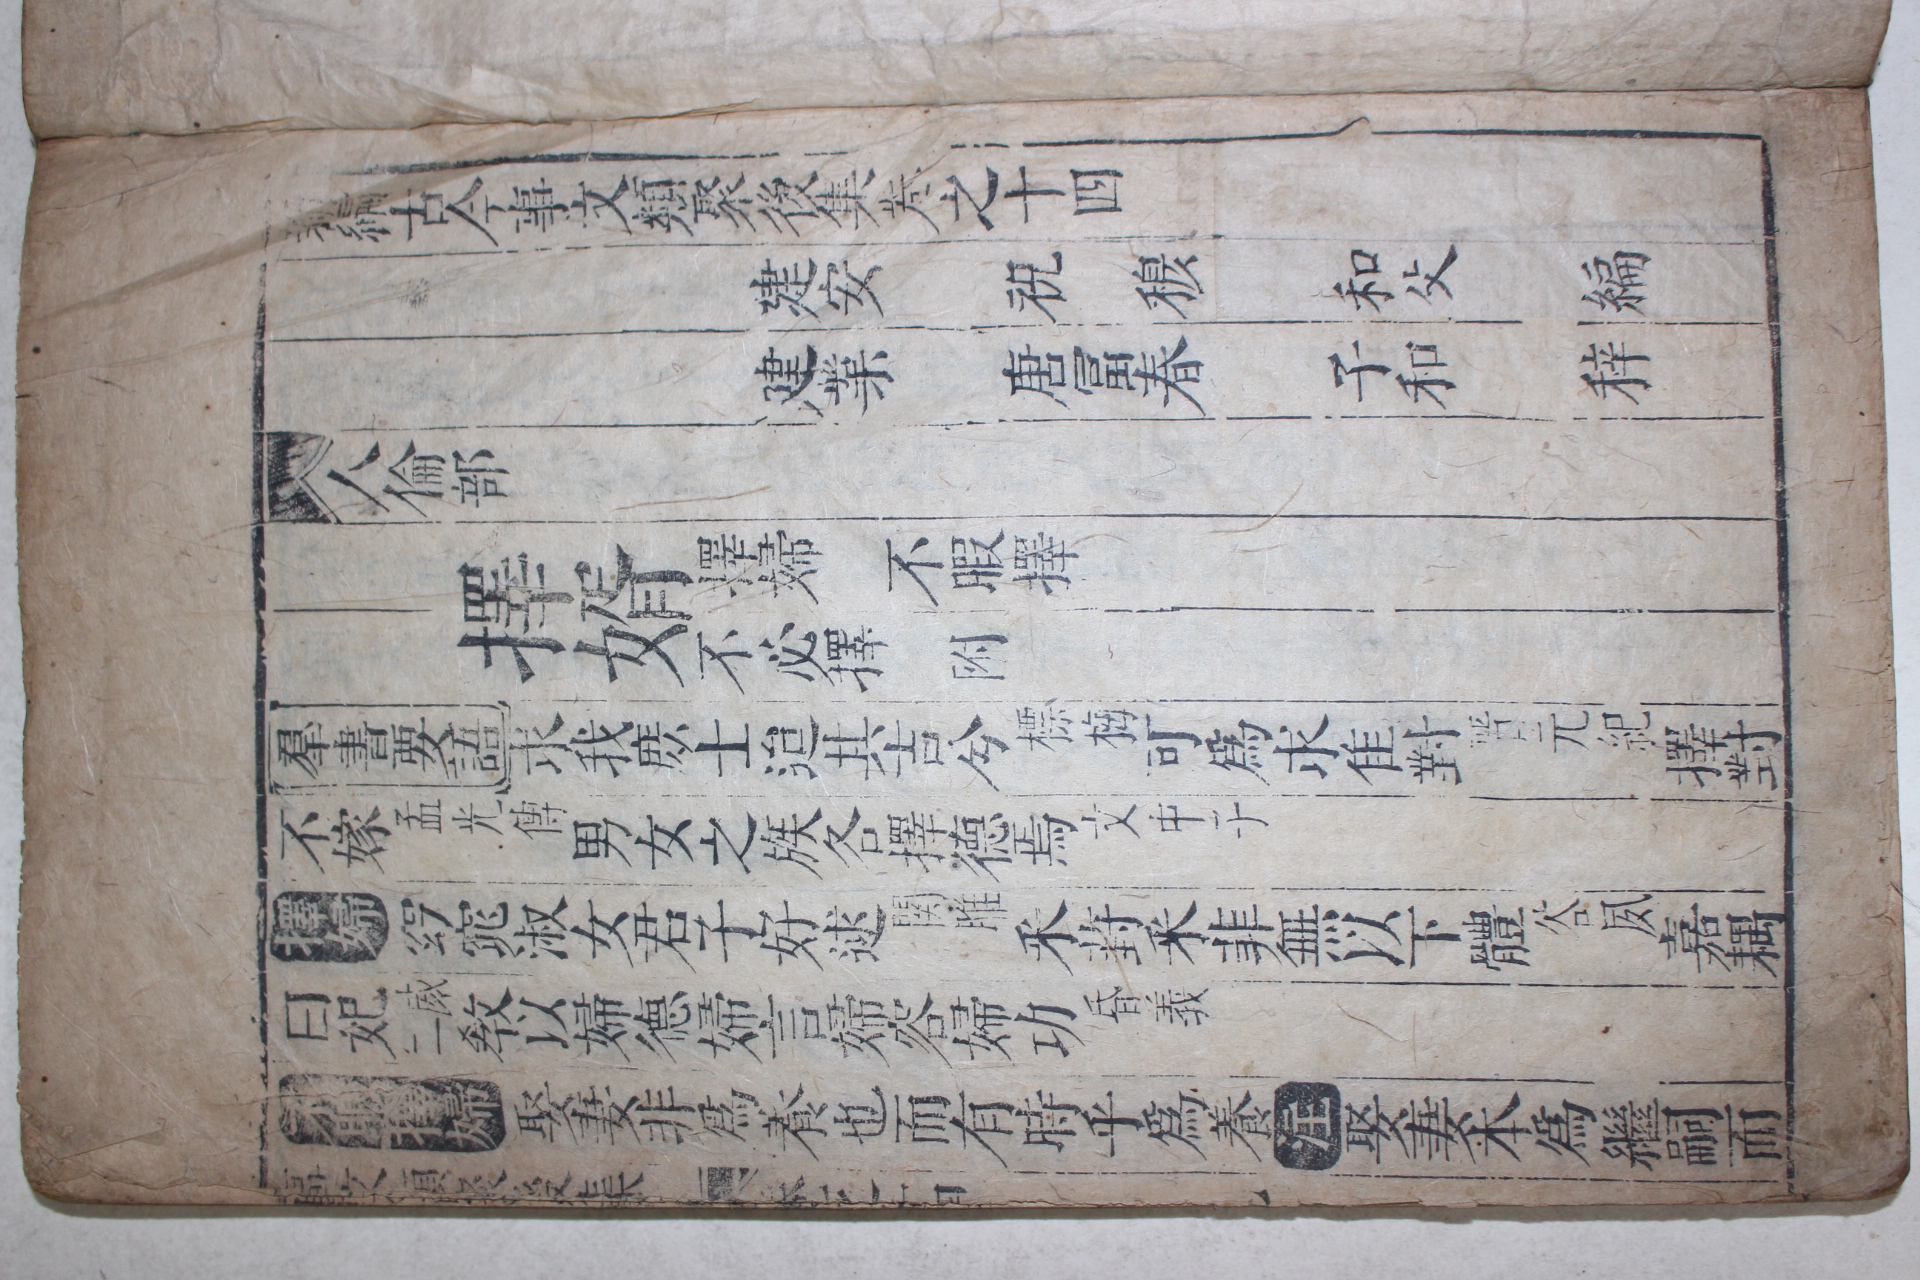 新編古今事文類聚後集卷之十四
建安 祝穆 和父 編
建業 唐富春 子和 梓
人倫部
擇壻 擇婦 不暇擇
不必擇 附
羣書要語 求我庶士迨其吉兮 摽梅 可爲求佳對 晋元紀 擇對
不嫁 孟光傳 男女之族各擇德焉 文中子
擇婦 窈窕淑女君子好逑 關雎 采葑采菲無以下體 谷風 嘉耦
曰妃 二 教以婦德婦言婦容婦功 昏義
不暇擇婦 娶妻非爲養也而有時乎爲養 注 娶妻本爲繼嗣而
事文類聚後集